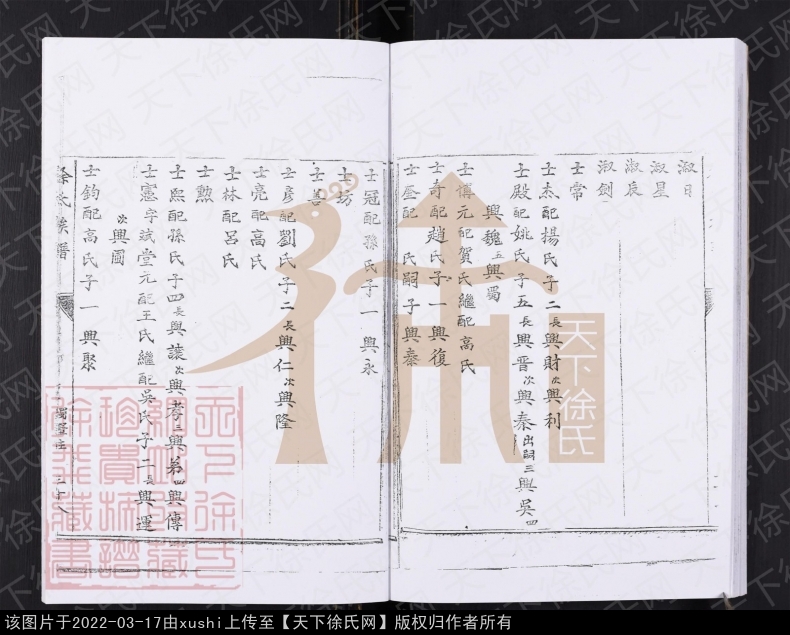 淑日
淑星
淑辰
淑劍
士常
士杰配楊氏子二長興財次興利
士殿配姚氏子五長興晋次興秦出嗣三興吳四
興魏五興蜀
士博元配賀氏繼配高氏
士奇配趙氏子一興復
士奎配 氏嗣子興秦
士冠配孫氏子一興永
士坊
士善
士彥配劉氏子二長興仁次興隆
士亮配高氏
士林配呂氏
士勲
士熙配孫氏子四長興讓次興孝三興弟四興傳
士憲字斌堂元配王氏繼配吳氏子二長興運
次興國
士鈞配高氏子一興聚
徐氏族譜
三十八
天下徐氏
天下徐氏网
该图片于2022-03-17由xushi上传至【天下徐氏网】版权归作者所有